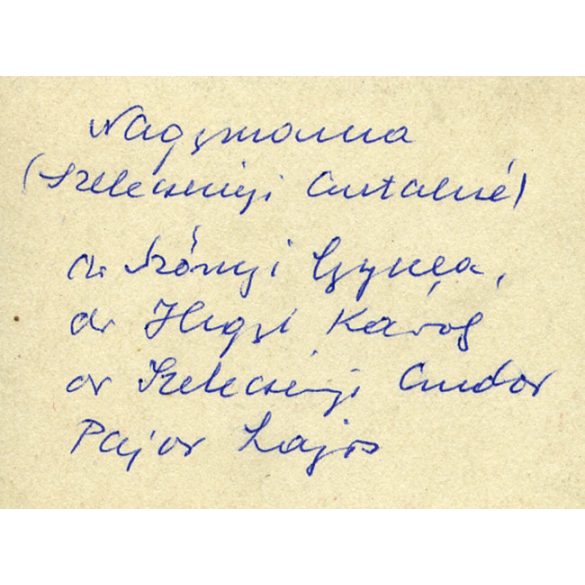 Nagymama
(Szelecsényi Antalné)
dr Szőnyi Gyula,
dr Hegyi Károly
dr Szelecsényi Andor
Pajor Lajos